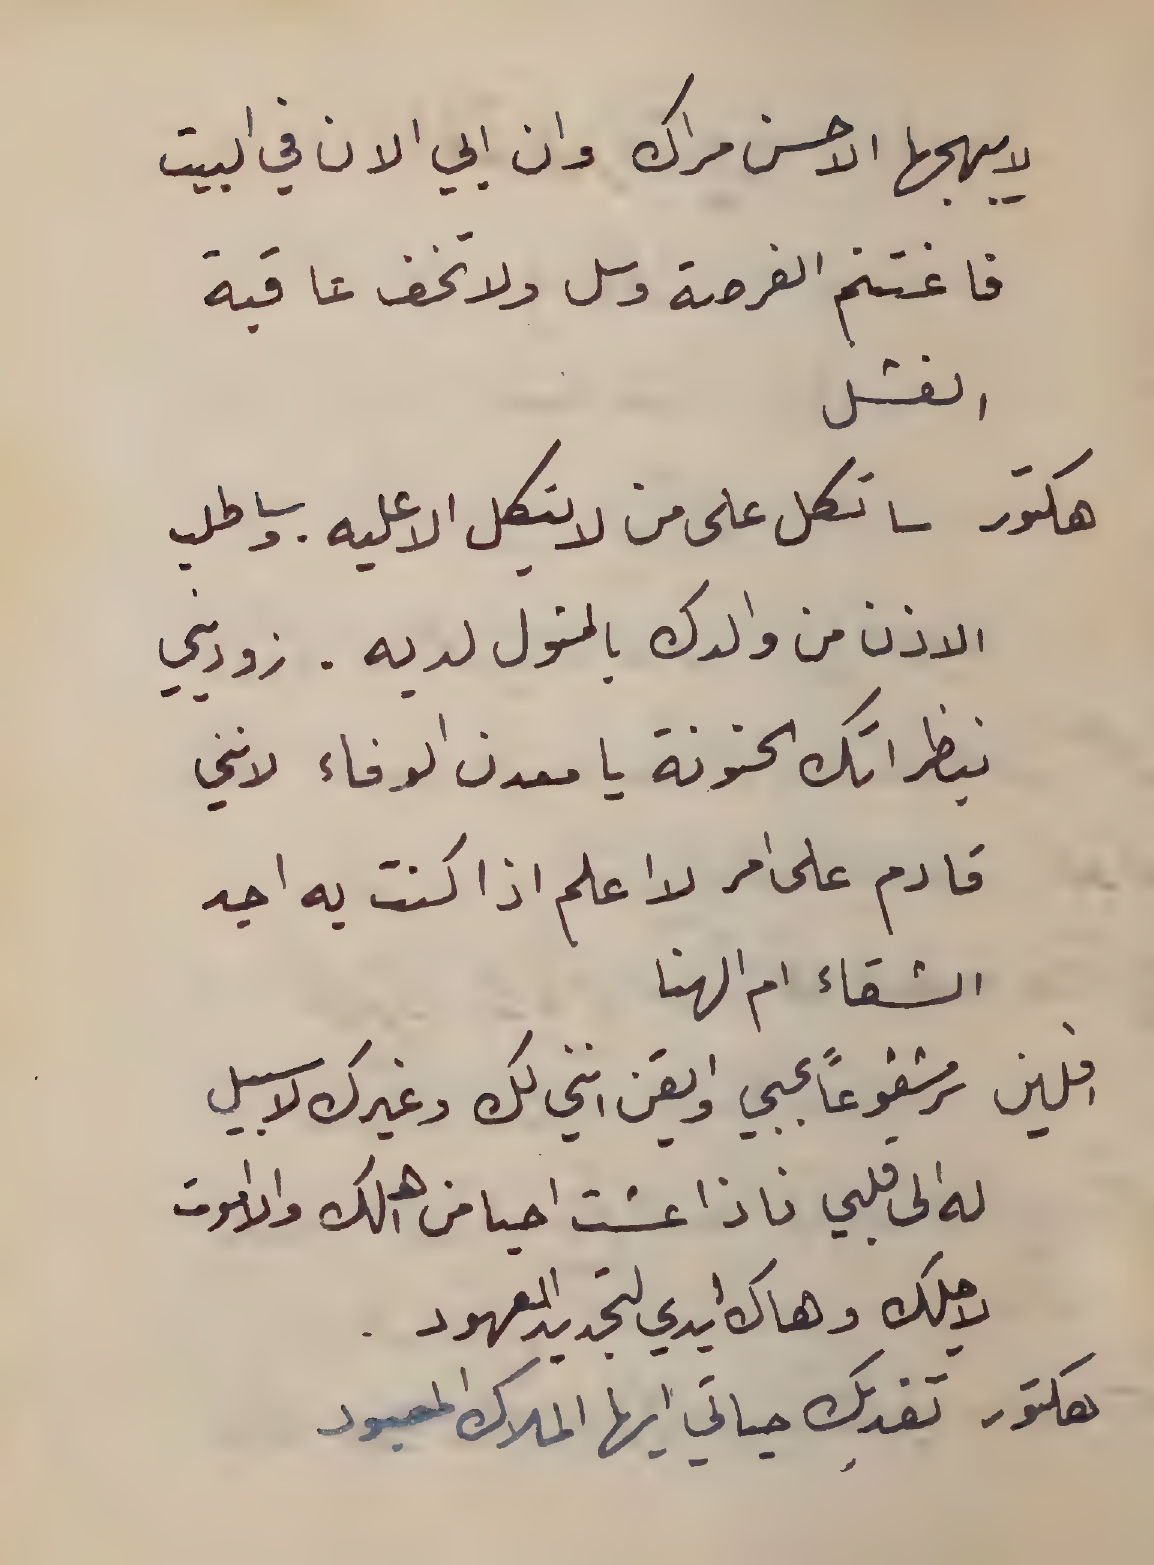 لا يبهجها الا حسن مراك وان ابي الان في البيت
فاغتنم الفرصة وسل ولا تخف عاقبة
الفشل
هكتور ساتكل على من لا يتكل الا عليه . وساطلب
الاذن من والدك بالمثول لديه . زوديني
بنظراتك الحنونة يا معدن الوفاء لانني
قادم على امر لا اعلم اذا كنت به اجد
الشقاء ام الهنا
افلين سر مشفوعاً بحبي وايقن انني لك وغيرك لا سبيل
له الى قلبي فاذا عشت احيا من اهلك والا اموت
لاجلك وهاك ايدي لتجديد العهود .
هكتور تفديك حياتي ايها الملاك المعبود